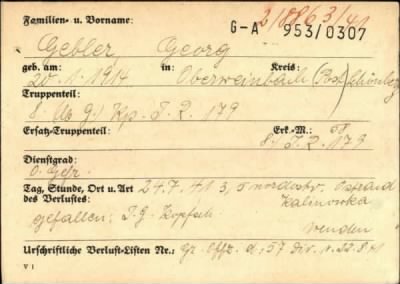 Familien- u. Vorname: 2/8863/41
Gebler Georg G-A 953/0307
geb. am: in: Kreis:
20.1.1914 Oberweinbach (Post Schönberg)
Truppenteil:
8. (M.G.) Kp. J.R. 179
Ersatz-Truppenteil: Erk.-M.: 58
8/ J.R. 179
Dienstgrad:
O. Gefr.
Tag, Stunde, Ort u. Art 24.7.41 nordostw. Ostrand
des Verlustes: Kalinowka
gefallen: J.G. Kopfsch. wenden
Urschriftliche Verlust-Listen Nr.: 57 Div. v. 22.8.41
V 1